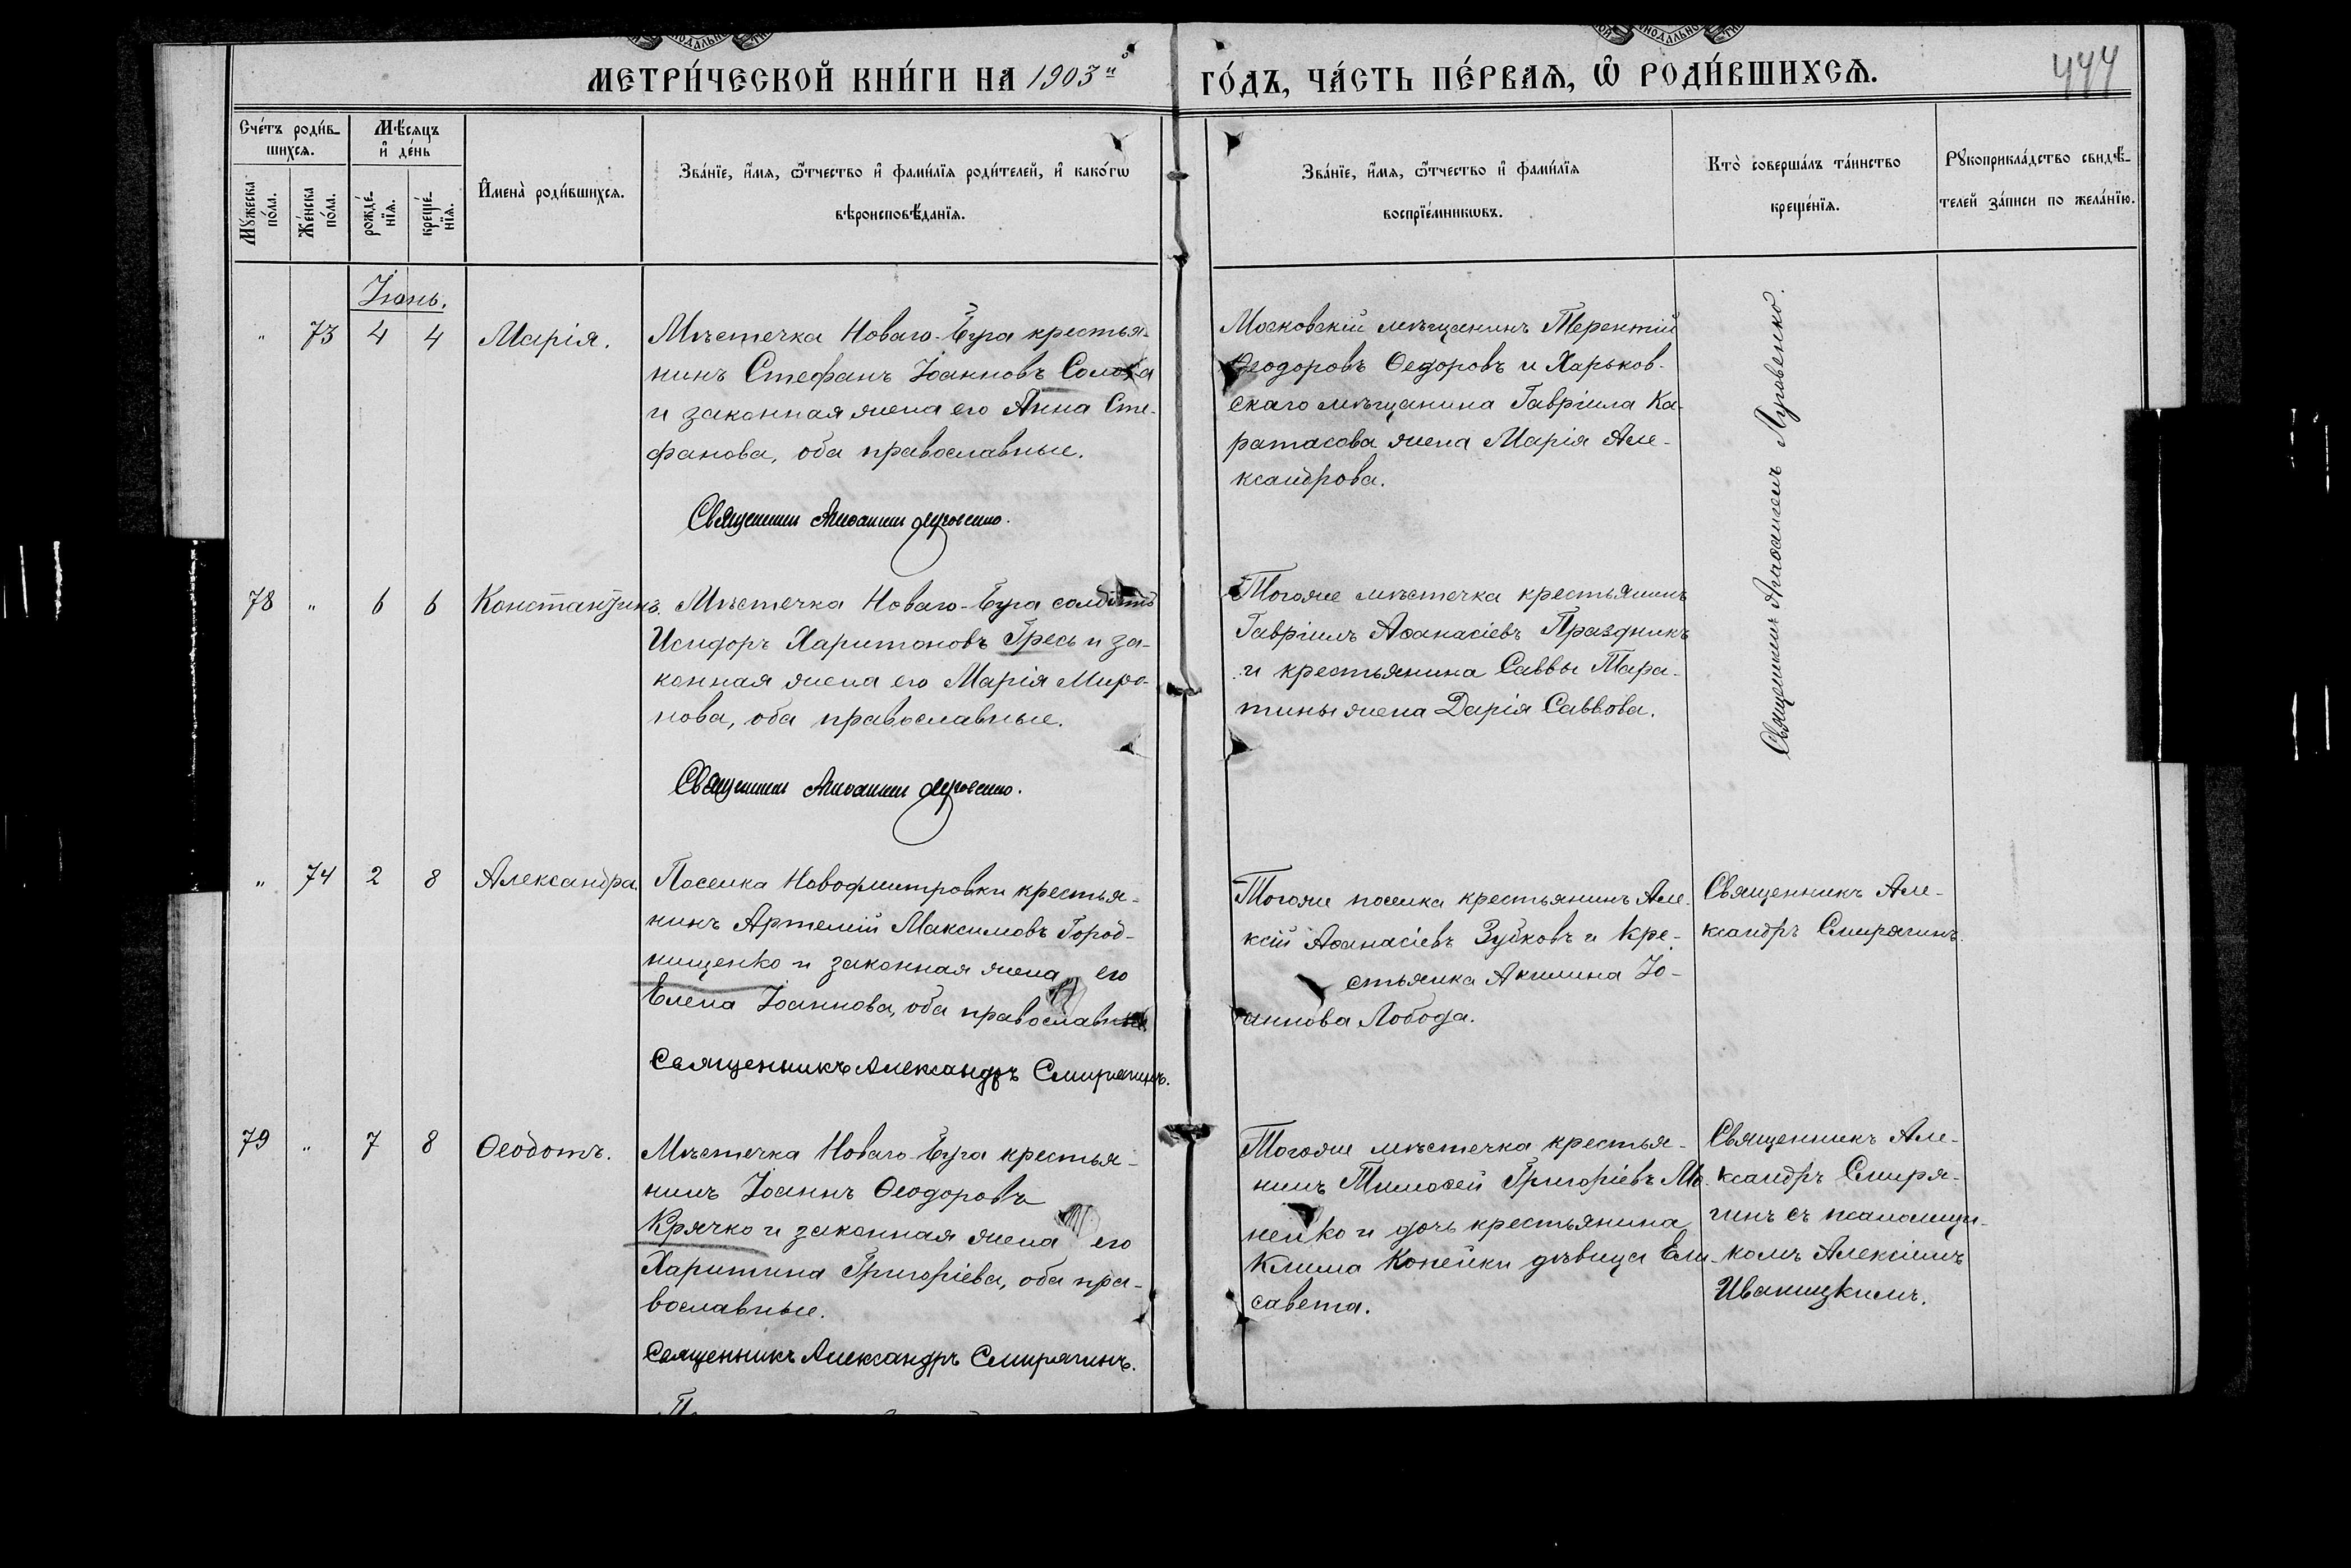 МЕТРИ́ЧЕСКОЙ КНИ́ГИ НА 1903й
ГО́ДЪ, ЧА́СТЬ ПЕ́РВАѦ, Ѿ РОДИ́ВШИХСѦ.
444
Сче́тъ роди́в-
шихсѧ.
Мѣ́сѧцъ
и҆ де́нь
Мꙋ́жеска
по́ла.
Же́нска
по́ла.
рожде́-
нїѧ.
креще́-
нїѧ.
И҆мена̀ роди́вшихсѧ.
Зва́нїе, и҆́мѧ, ѻ҆́тчество и҆ фами́лїѧ роди́телей, и҆ како́гѡ
вѣроисповѣ́данїѧ.
Зва́нїе, и҆́мѧ, ѻ҆́тчество и҆ фами́лїѧ
воспрїе́мникѡвъ.
Кто̀ соверша́лъ та́инство
креще́нїѧ.
Рꙋкоприкла́дство свидѣ́-
телей за́писи по жела́нїю.
Іюнь.
" 73 4 4 Марія.
Мѣстечка Новаго-Буга крестья-
нинъ Стефанъ Іоанновъ Солоха
и законная жена его Анна Сте-
фанова, оба православные.
Священникъ Луговенко.
Московскій мѣщанинъ Терентій
Ѳеодоровъ Ѳедоровъ и Харьков-
скаго мѣщанина Гавріила Ка-
ратасова жена Марія Але-
ксандрова.
Священникъ Луговенко.
78 " 6 6 Константинъ.
Мѣстечка Новаго-Буга солдатъ
Исидоръ Харитоновъ Гресь и за-
конная жена его Марія Миро-
нова, оба православные.
Священникъ Луговенко.
Тогоже мѣстечка крестьянинъ
Гавріилъ Аѳанасіевъ Праздникъ
и крестьянина Саввы Тара-
тины жена Дарія Саввова.
" 74 2 8 Александра.
Поселка Новодмитровки крестья-
нинъ Артемій Максимовъ Город-
нищенко и законная жена его
Елена Іоаннова, оба православные
Священникъ Александръ Смирягинъ.
Тогоже поселка крестьянинъ Але-
ксій Аѳанасіевъ Зубковъ и кре-
стьянка Акилина Іо-
аннова Лобода.
Священникъ Але-
ксандръ Смирягинъ.
79 " 7 8 Ѳеодотъ.
Мѣстечка Новаго-Буга крестья-
нинъ Іоаннъ Ѳеодоровъ
Крячко и законная жена его
Харитина Григоріева, оба пра-
вославные.
Священникъ Александръ Смирягинъ.
Тогоже мѣстечка крестья-
нинъ Тимоѳей Григоріевъ Мо-
нейко и дочь крестьянина
Клима Копейки дѣвица Ели-
савета.
Священникъ Але-
ксандръ Смиря-
гинъ съ псаломщи-
комъ Алексіемъ
Иваницкимъ.